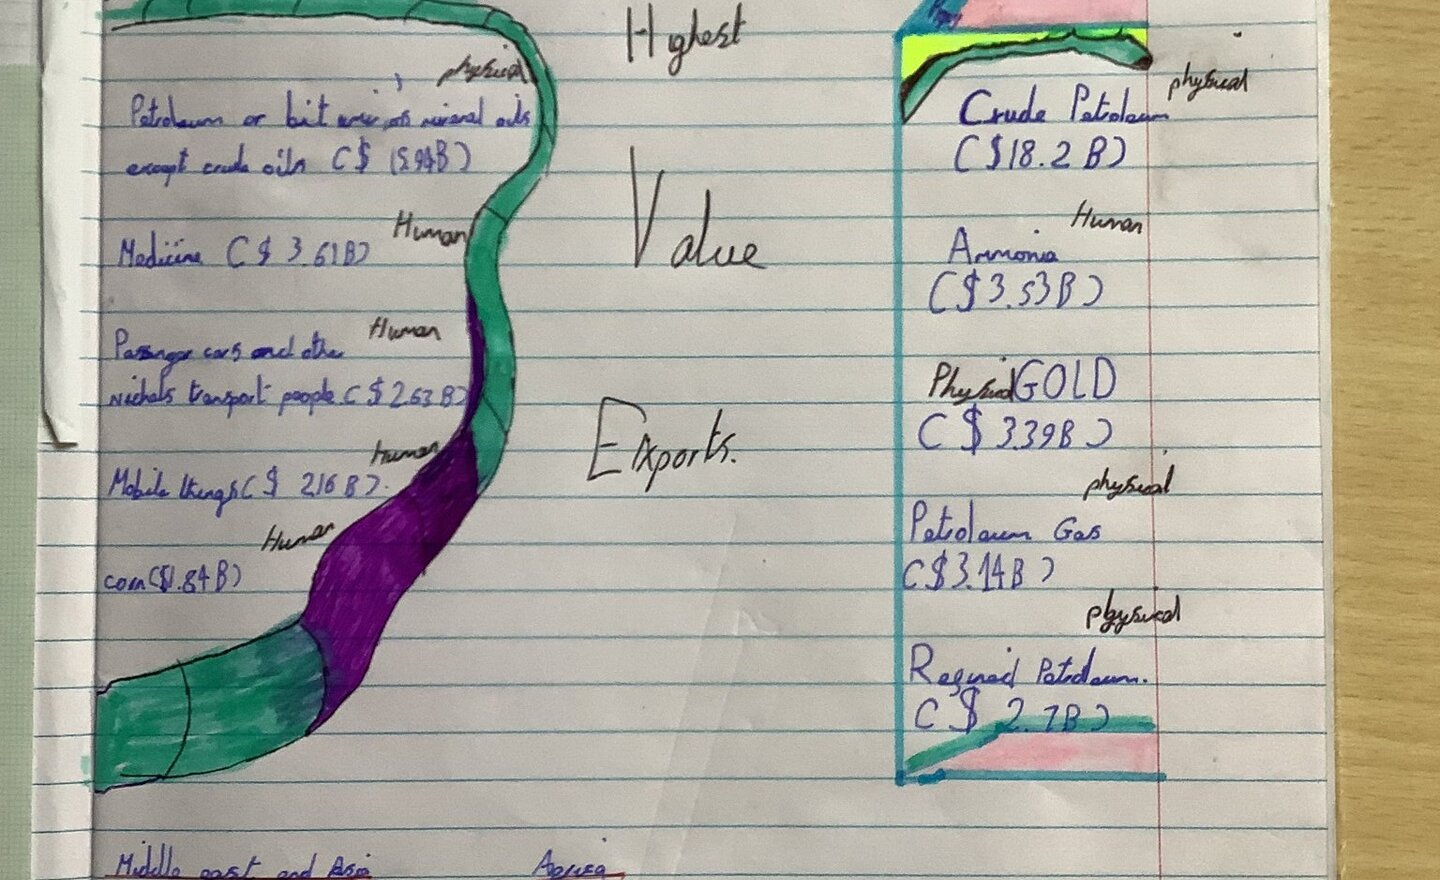 Highest
Value
Exports.
physical
Petroleum or bituminous mineral oils
except crude oils ($ 15.94B)
Human
Medicine ($ 3.61B)
Human
Passenger cars and othe
transport people ($ 2.63B)
Human
Mobile things ($ 2.16B).
Human
corn ($1.84B)
physical
Crude Petroleum
($18.2B)
Human
Ammonia
($3.53B)
Physical GOLD
($ 3.39B)
physical
Petroleum Gas
($3.14B)
physical
Petroleum.
($ 2.7B)
Middle east and Asia